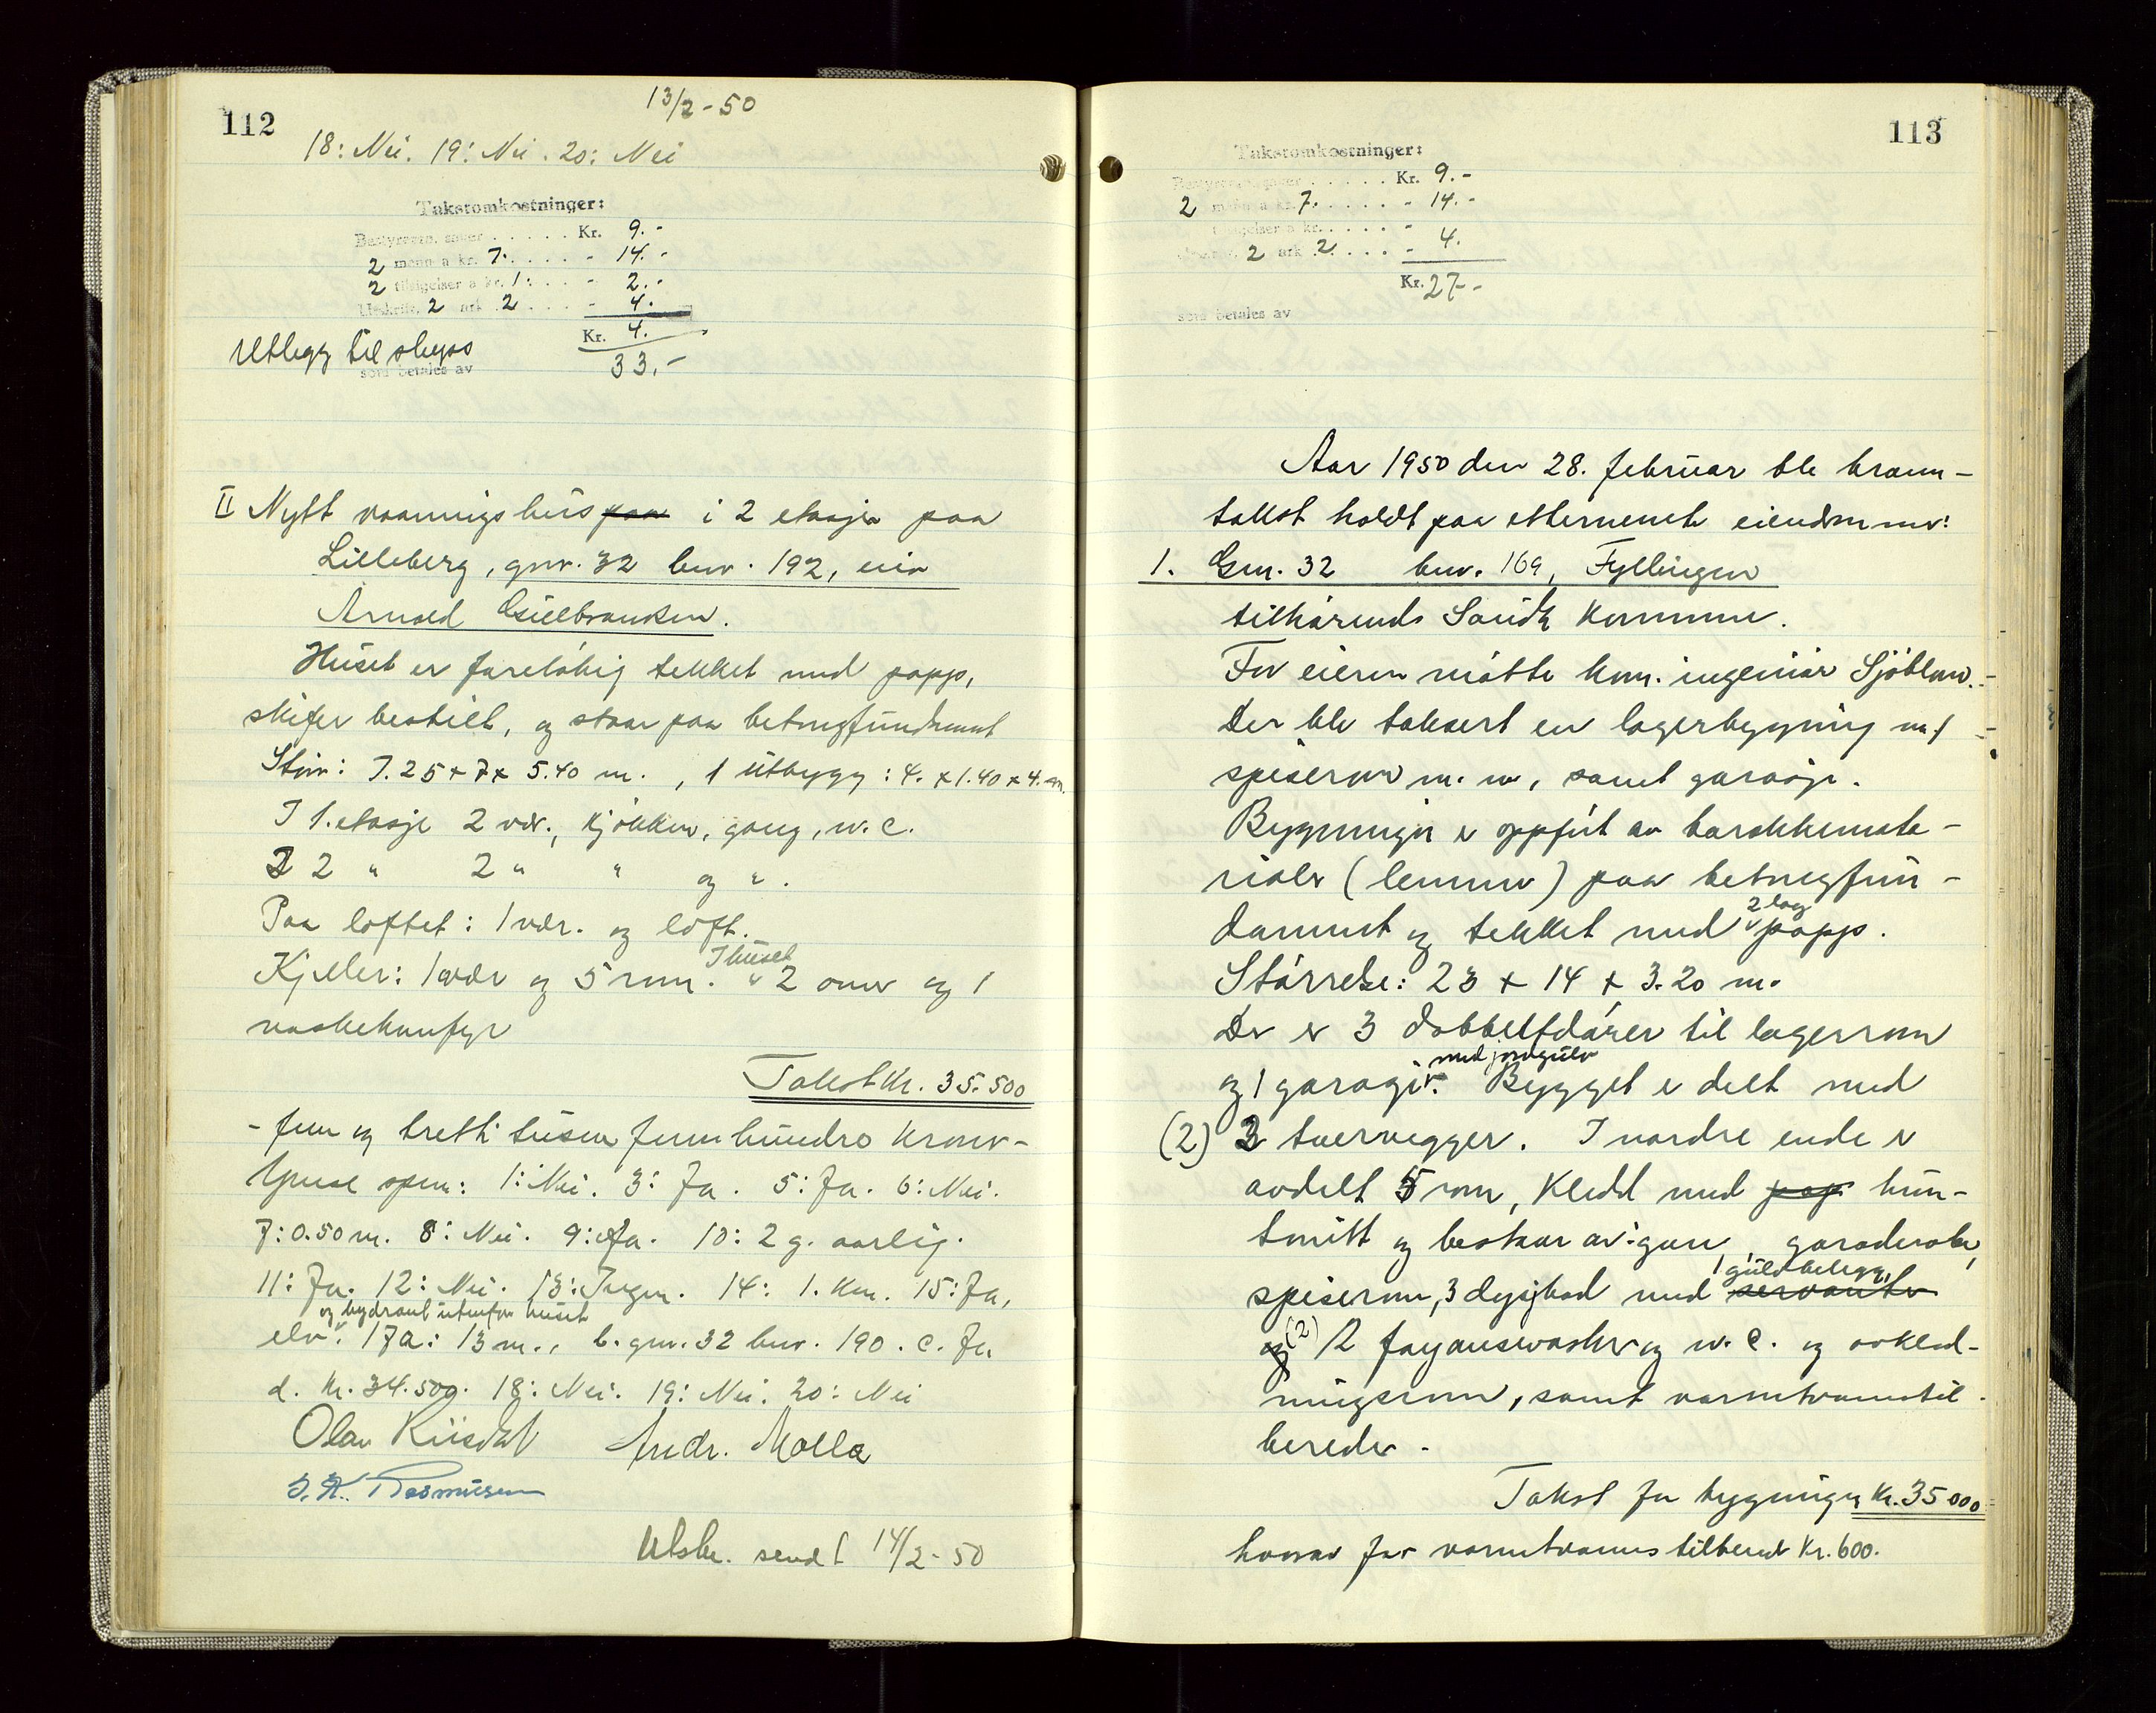 112
13/2-50
18: Nei. 19: Nei. 20: Nei
Takstomkostninger:
Bestyreren, sager ..... Kr. 9.-
2 menn a kr. 7. .... - 14.-
2 tilsigelser a kr. 1: ... - 2.-
Utskrift 2 ark 2 .... - 4.
Kr. 4.
Utlegg til skyss
33.-
som betales av
II Nytt vaaningshus paa i 2 etasjer paa
Lilleberg, gnr. 32 bnr. 192, eier
Arnold Gulbrandsen.
Huset er foreløbig tekket med papp,
skifer bestilt, og staar paa betongfundament
Størr: 7.25 + 7 + 5.40 m., 1 utbygg: 4. + 1.40 + 4. m.
I 1. etasje 2 vær., kjøkken, gang, w.c.
I 2 " 2 " " og ".
Paa loftet: 1 vær. og loft.
I huset
Kjeller: 1 vær og 5 rom. v 2 ovner og 1
vaskekomfyr
Takst Kr. 35.500
- fem og tretti tusen fem hundre kroner -
Ymse spm: 1: Nei. 3: Ja. 5: Ja. 6: Nei.
7: 0.50 m. 8: Nei. 9: Ja. 10: 2 g. aarlig.
11: Ja. 12: Nei. 13: Ingen. 14: 1. km. 15: Ja,
og hydrant utenfor huset
elv v. 17a: 13 m., b. gnr. 32 bnr. 190. c. Ja
d. Kr. 34.500. 18: Nei. 19: Nei. 20: Nei
Olav Riisdal Andr. Molla
Rasmussen
Utskr. sendt 14/2-50
113
Takstomkostninger:
Bestyreren, sager ..... Kr. 9.-
2 menn a kr. 7. .... - 14.-
tilsigelser a kr. .... -
2 ark 2 .... - 4.
Kr. 27.-
som betales av
Aar 1950 den 28. februar ble brann-
takst holdt paa etternevnte eiendommer:
1. Gnr. 32 bnr. 169, Fyllingen
tilhørende Søndre Kommune.
For eieren møtte kom. ingeniør Sjöblom.
Der ble taksert en lagerbygning med
spiserom m. m., samt garasje.
Bygningen er oppført av barakkemate-
rialer (lemmer) paa betongfun-
2 lag
dament og tekket med v papp.
Størrelse: 23 + 14 + 3.20 m.
Der er 3 dobbeltdører til lagerrom
med jordgulv
og 1 garasje v. Bygget er delt med
(2) 2 tverrvegger. I nordre ende er
avdelt 5 rom, kledd med pap hun-
tonitt og bestaar av: gang, garderober,
1 gulvbelegg,
spiserom, 3 dusjbad med servanter
og (2) 12 fayansevasker og w.c. og avkled-
ningsrom, samt varmtvannstil-
bereder.
Takst for bygningen Kr. 35 000
hvorav for varmtvannstilbered Kr. 600.